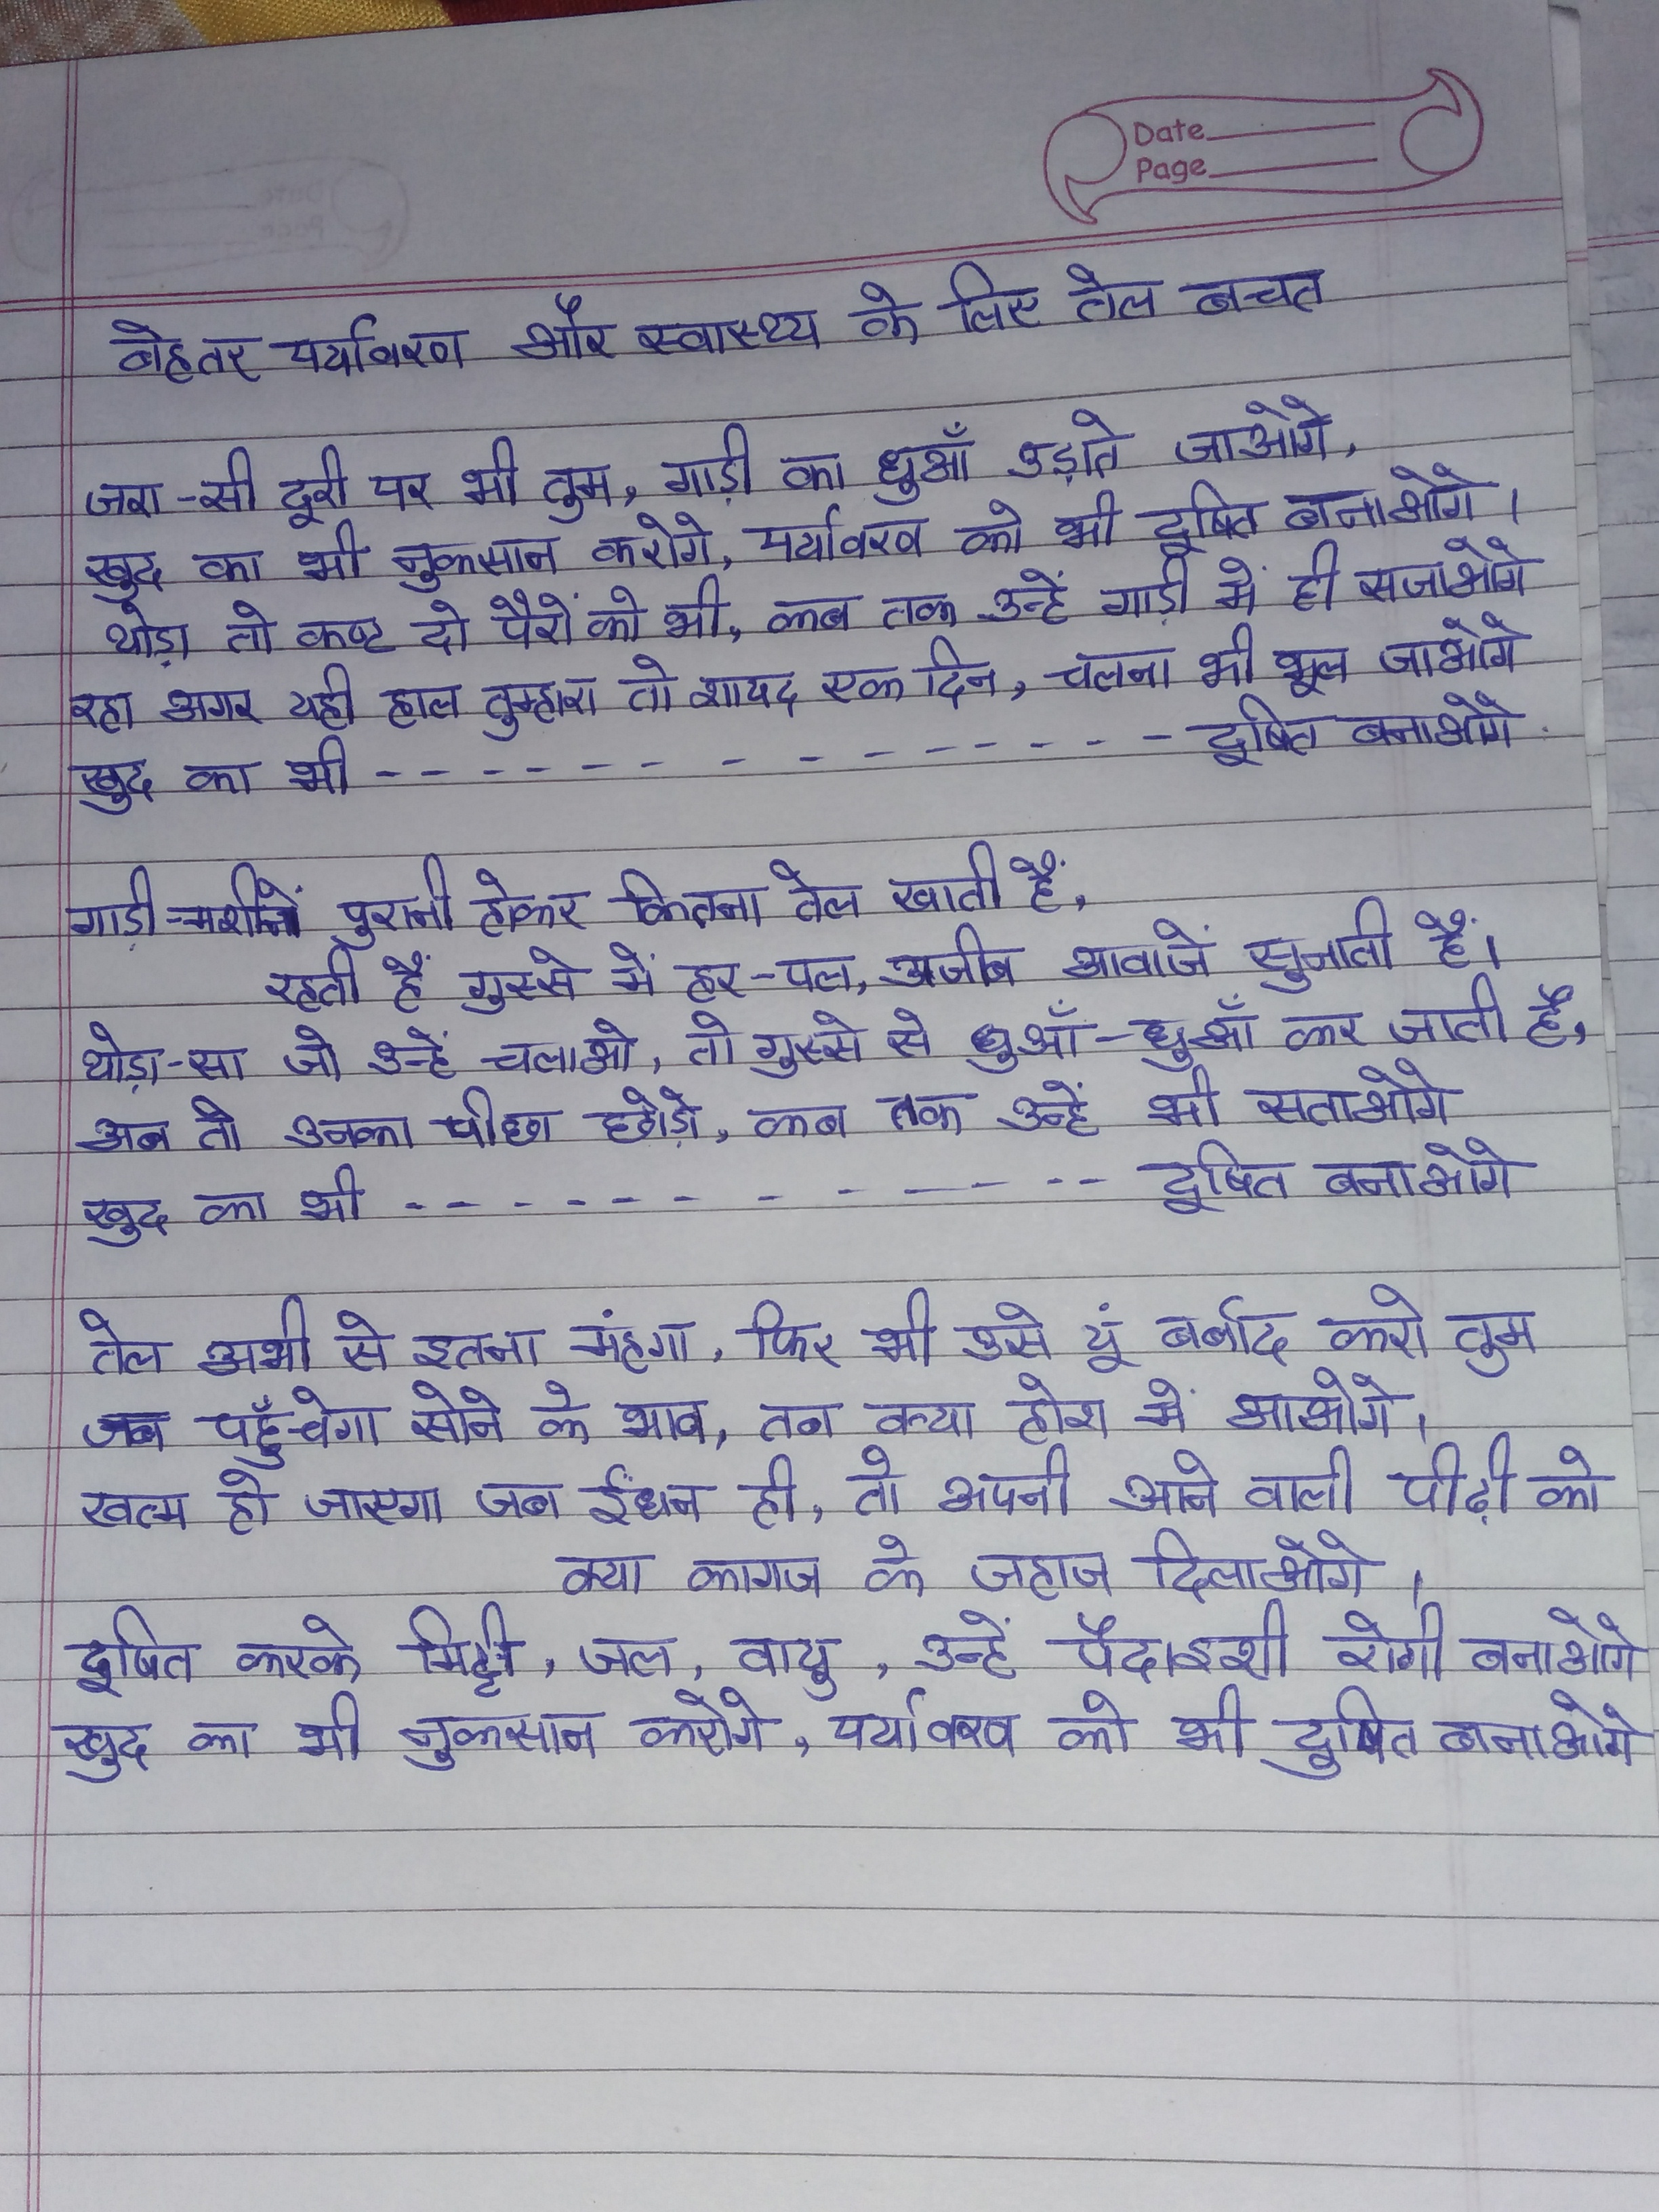 Date
Page
बेहतर पर्यावरण और स्वास्थ्य के लिए तेल बचत
जरा-सी दूरी पर भी तुम, गाड़ी का धुआँ उड़ाते जाओगे,
खुद का भी नुकसान करोगे, पर्यावरण को भी दूषित बनाओगे।
थोड़ा तो कष्ट दो पैरों को भी, कब तक उन्हें गाड़ी में ही सजाओगे
रहा अगर यही हाल तुम्हारा तो शायद एक दिन, चलना भी भूल जाओगे
खुद का भी - - - - - - - - - - - - - - - दूषित बनाओगे
गाड़ी-मशीनें पुरानी होकर कितना तेल खाती हैं,
रहती हैं गुस्से में हर-पल, अजीब आवाजें सुनाती हैं।
थोड़ा-सा जो उन्हें चलाओ, तो गुस्से से धुआँ-धुआँ कर जाती हैं,
अब तो उनका पीछा छोड़ो, कब तक उन्हें भी सताओगे
खुद का भी - - - - - - - - - - - - - - दूषित बनाओगे
तेल अभी से इतना मंहगा, फिर भी उसे यूं बर्बाद करो तुम
जब पहुँचेगा सोने के भाव, तब क्या होश में आओगे।
खत्म हो जाएगा जब ईंधन ही, तो अपनी आने वाली पीढ़ी को
क्या कागज के जहाज दिलाओगे।
दूषित करके मिट्टी, जल, वायु, उन्हें पैदाइशी रोगी बनाओगे
खुद का भी नुकसान करोगे, पर्यावरण को भी दूषित बनाओगे